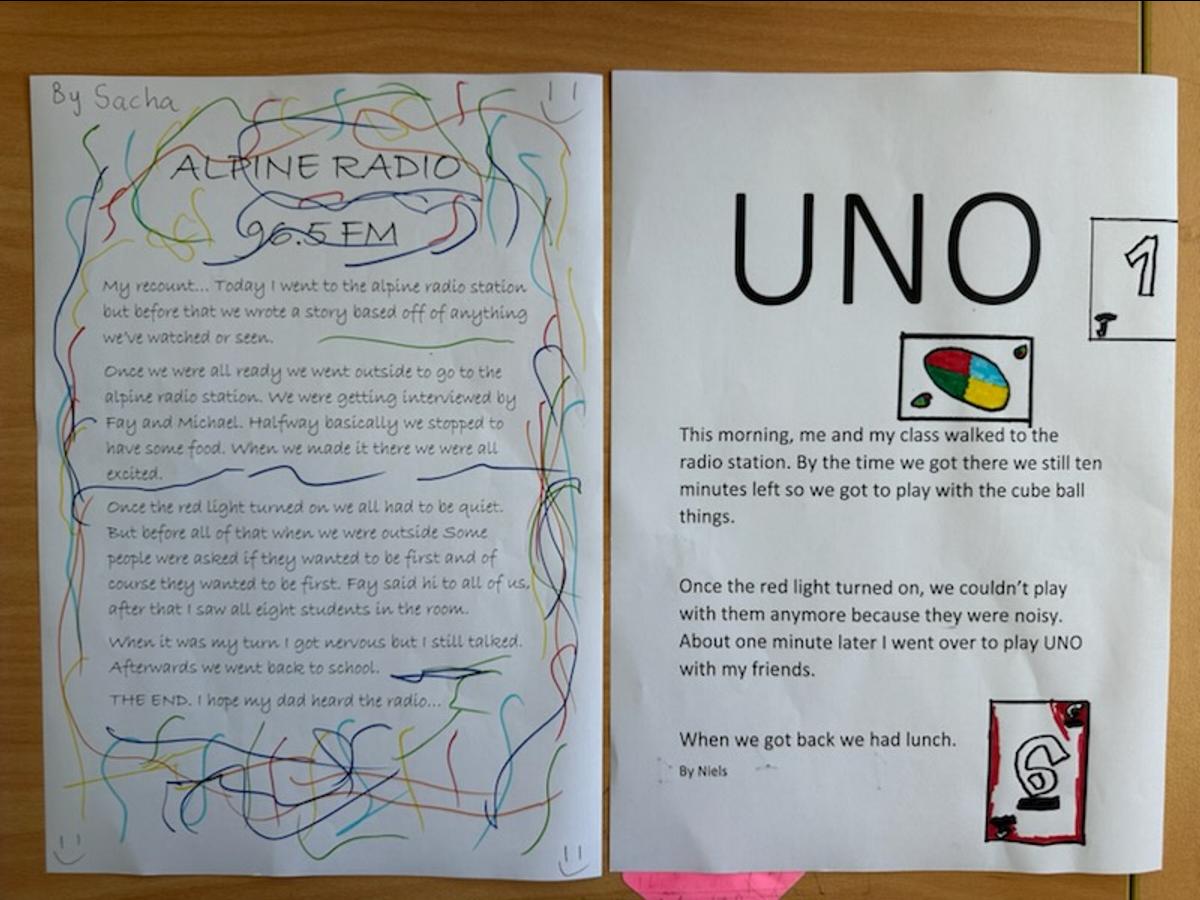 By Sacha
ALPINE RADIO
96.5 FM
My recount... Today I went to the alpine radio station
but before that we wrote a story based off of anything
we've watched or seen.
Once we were all ready we went outside to go to the
alpine radio station. We were getting interviewed by
Fay and Michael. Halfway basically we stopped to
have some food. When we made it there we were all
excited.
Once the red light turned on we all had to be quiet.
But before all of that when we were outside Some
people were asked if they wanted to be first and of
course they wanted to be first. Fay said hi to all of us,
after that I saw all eight students in the room.
When it was my turn I got nervous but I still talked.
Afterwards we went back to school.
THE END. I hope my dad heard the radio...
UNO
1
This morning, me and my class walked to the
radio station. By the time we got there we still ten
minutes left so we got to play with the cube ball
things.
Once the red light turned on, we couldn't play
with them anymore because they were noisy.
About one minute later I went over to play UNO
with my friends.
When we got back we had lunch.
By Niels
6